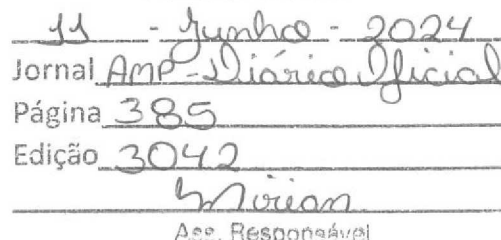 11 - Junho - 2024
Jornal AMP - Diário Oficial
Página 385
Edição 3042
Mirian
Ass. Responsável